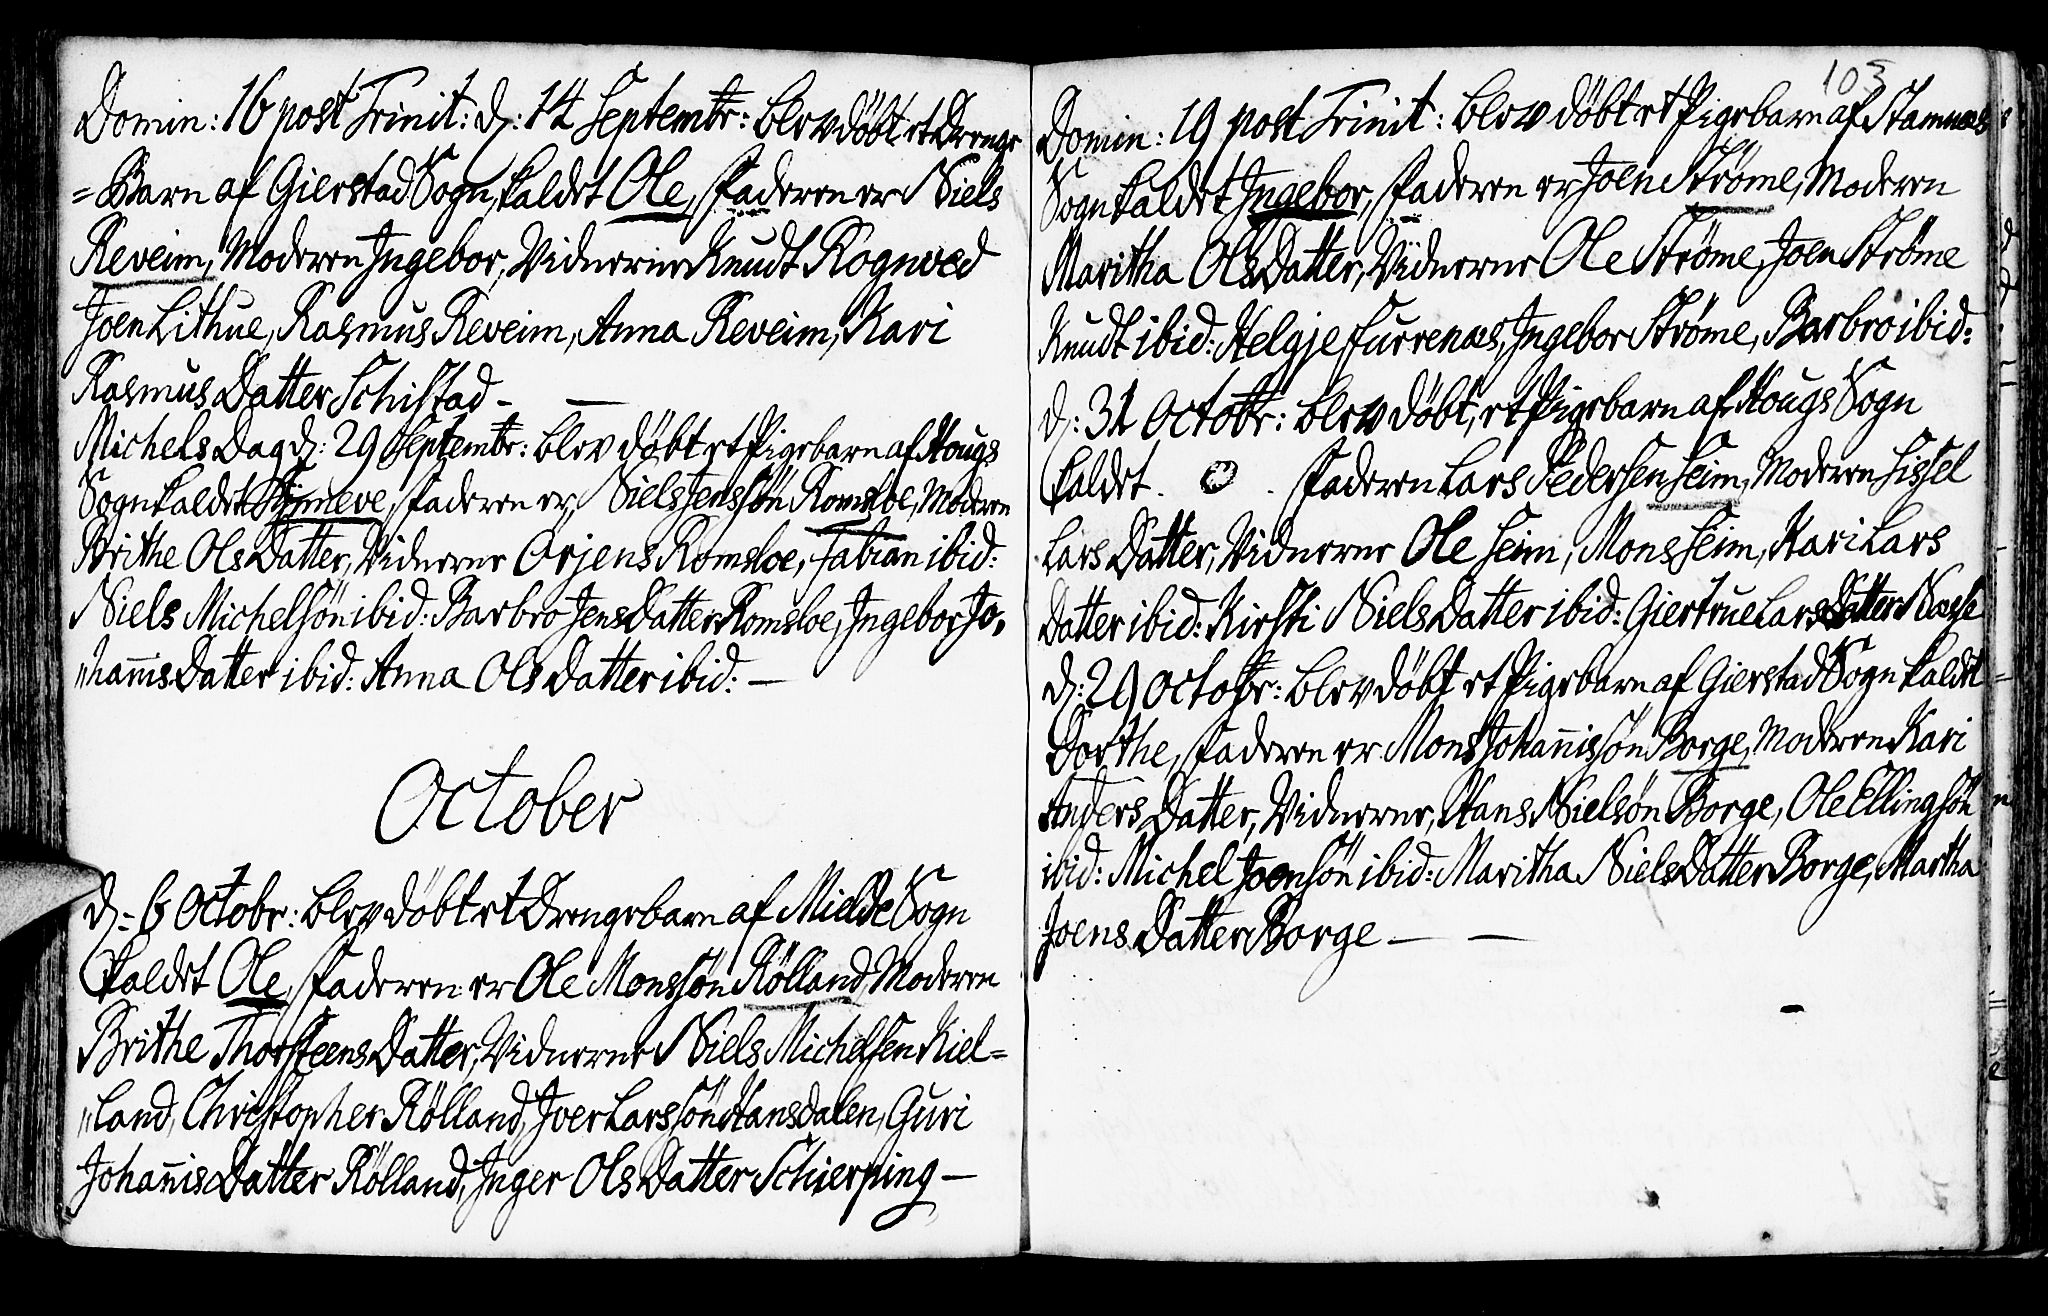 Domin: 16 post Trinit: d: 14 Septembr: blev døbt et Drenge
= Barn af Gierstad Sogn, kaldet Ole, Faderen er Niels
Reveim, Moderen Ingebor, Vidnerne Knudt Rognved
Joen Lithue, Rasmus Reveim, Anna Reveim, Kari
Rasmus Datter Schistad –
Michels Dag d: 29 Septembr: blev døbt et Pigebarn af Hougs
Sogn kaldet Synneve, Faderen er, Niels Jenssøn Romsloe, Moderen
Brithe Ols Datter, Vidnerne Orjens Romsloe, Fabian ibid:
Niels Michelsøn ibid: Barbro Jens Datter Romsloe, Ingebor Jo,
„han̄is Datter ibid: Anna Ols Datter ibid: –
October
d: 6 Octobr: blev døbt et Drengebarn af Mielde Sogn
kaldet Ole, Faderen er Ole Monssøn Rølland, Moderen
Brithe Thorsteens Datter, Vidnerne Niels Michelsen Kiel=
„land, Christopher Rølland, Joer Larssøn Hansdalen, Guri
Johan̄is Datter Rølland, Inger Ols Datter Schierping –
103
Domin: 19 post Trinit: blev døbt et Pigebarn af Stamnæs
Sogn kaldet Ingebor, Faderen er Joen Strøme, Moderen
Maritha Ols Datter, Vidnerne Ole Strøme, Joen Strøme
Knudt ibid: Helgje Furrenæs, Ingebor Strøme, Barbro ibid:
d: 31 Octobr: blev døbt, et Pigebarn af Hougs Sogn
kaldet . . Faderen Lars Pedersen Seim, Moderen Sissel
Lars Datter, Vidnerne Ole Seim, Mons Seim, Kari Lars
Datter ibid: Kirsti Niels Datter ibid: Giertrue Lars Datter Næsse
d: 29 Octobr: blev døbt et Pigebarn af Gierstad Sogn kaldet
Dorthe, Faderen er Mons Johan̄issøn Borge, Moderen Kari
Anders Datter, Vidnerne, Hans Nielsøn Borge, Ole Ellingsøn
ibid: Michel Joensøn ibid: Maritha Niels Datter Borge, Martha
Joens Datter Borge – –